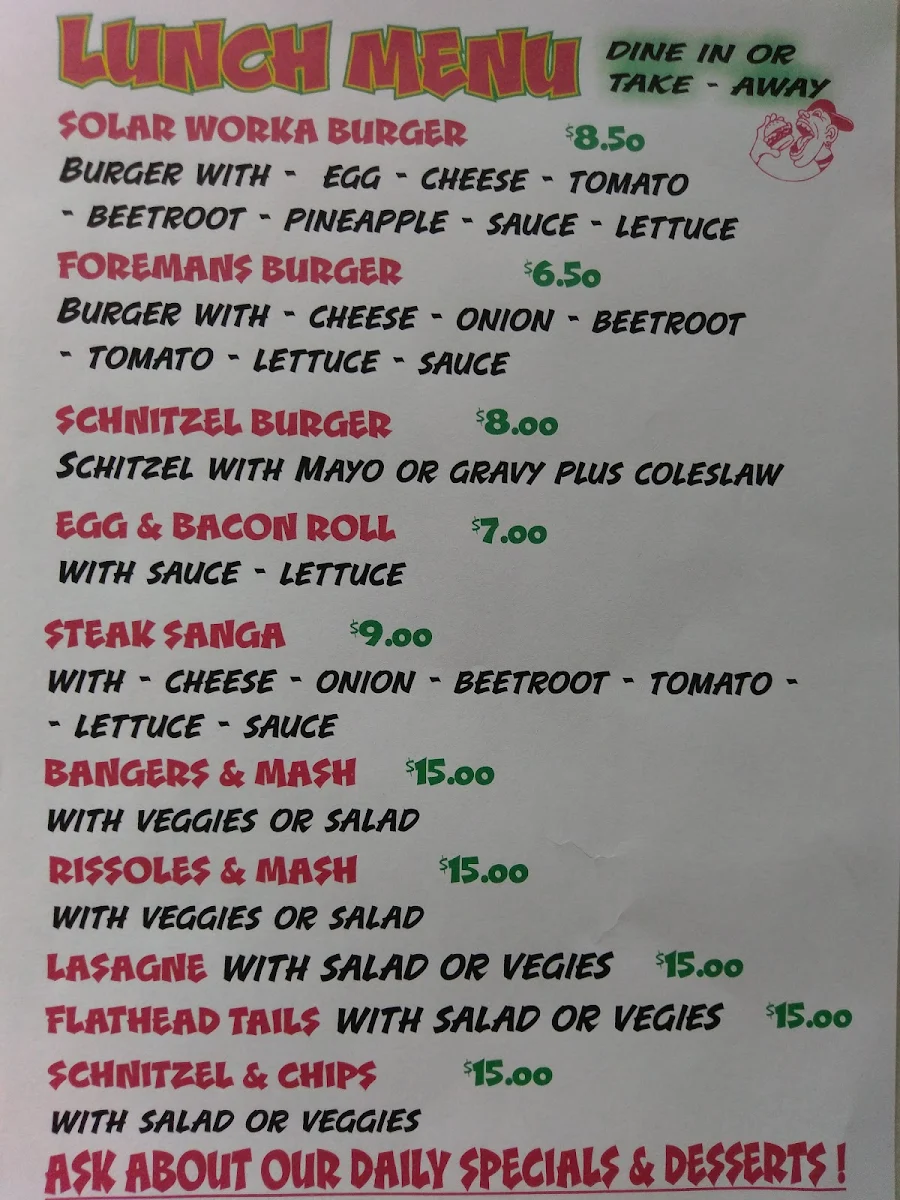 LUNCH MENU
DINE IN OR
TAKE - AWAY
SOLAR WORKA BURGER $8.50
BURGER WITH - EGG - CHEESE - TOMATO
- BEETROOT - PINEAPPLE - SAUCE - LETTUCE
FOREMANS BURGER $6.50
BURGER WITH - CHEESE - ONION - BEETROOT
- TOMATO - LETTUCE - SAUCE
SCHNITZEL BURGER $8.00
SCHITZEL WITH MAYO OR GRAVY PLUS COLESLAW
EGG & BACON ROLL $7.00
WITH SAUCE - LETTUCE
STEAK SANGA $9.00
WITH - CHEESE - ONION - BEETROOT - TOMATO -
- LETTUCE - SAUCE
BANGERS & MASH $15.00
WITH VEGGIES OR SALAD
RISSOLES & MASH $15.00
WITH VEGGIES OR SALAD
LASAGNE WITH SALAD OR VEGIES $15.00
FLATHEAD TAILS WITH SALAD OR VEGIES $15.00
SCHNITZEL & CHIPS $15.00
WITH SALAD OR VEGGIES
ASK ABOUT OUR DAILY SPECIALS & DESSERTS !